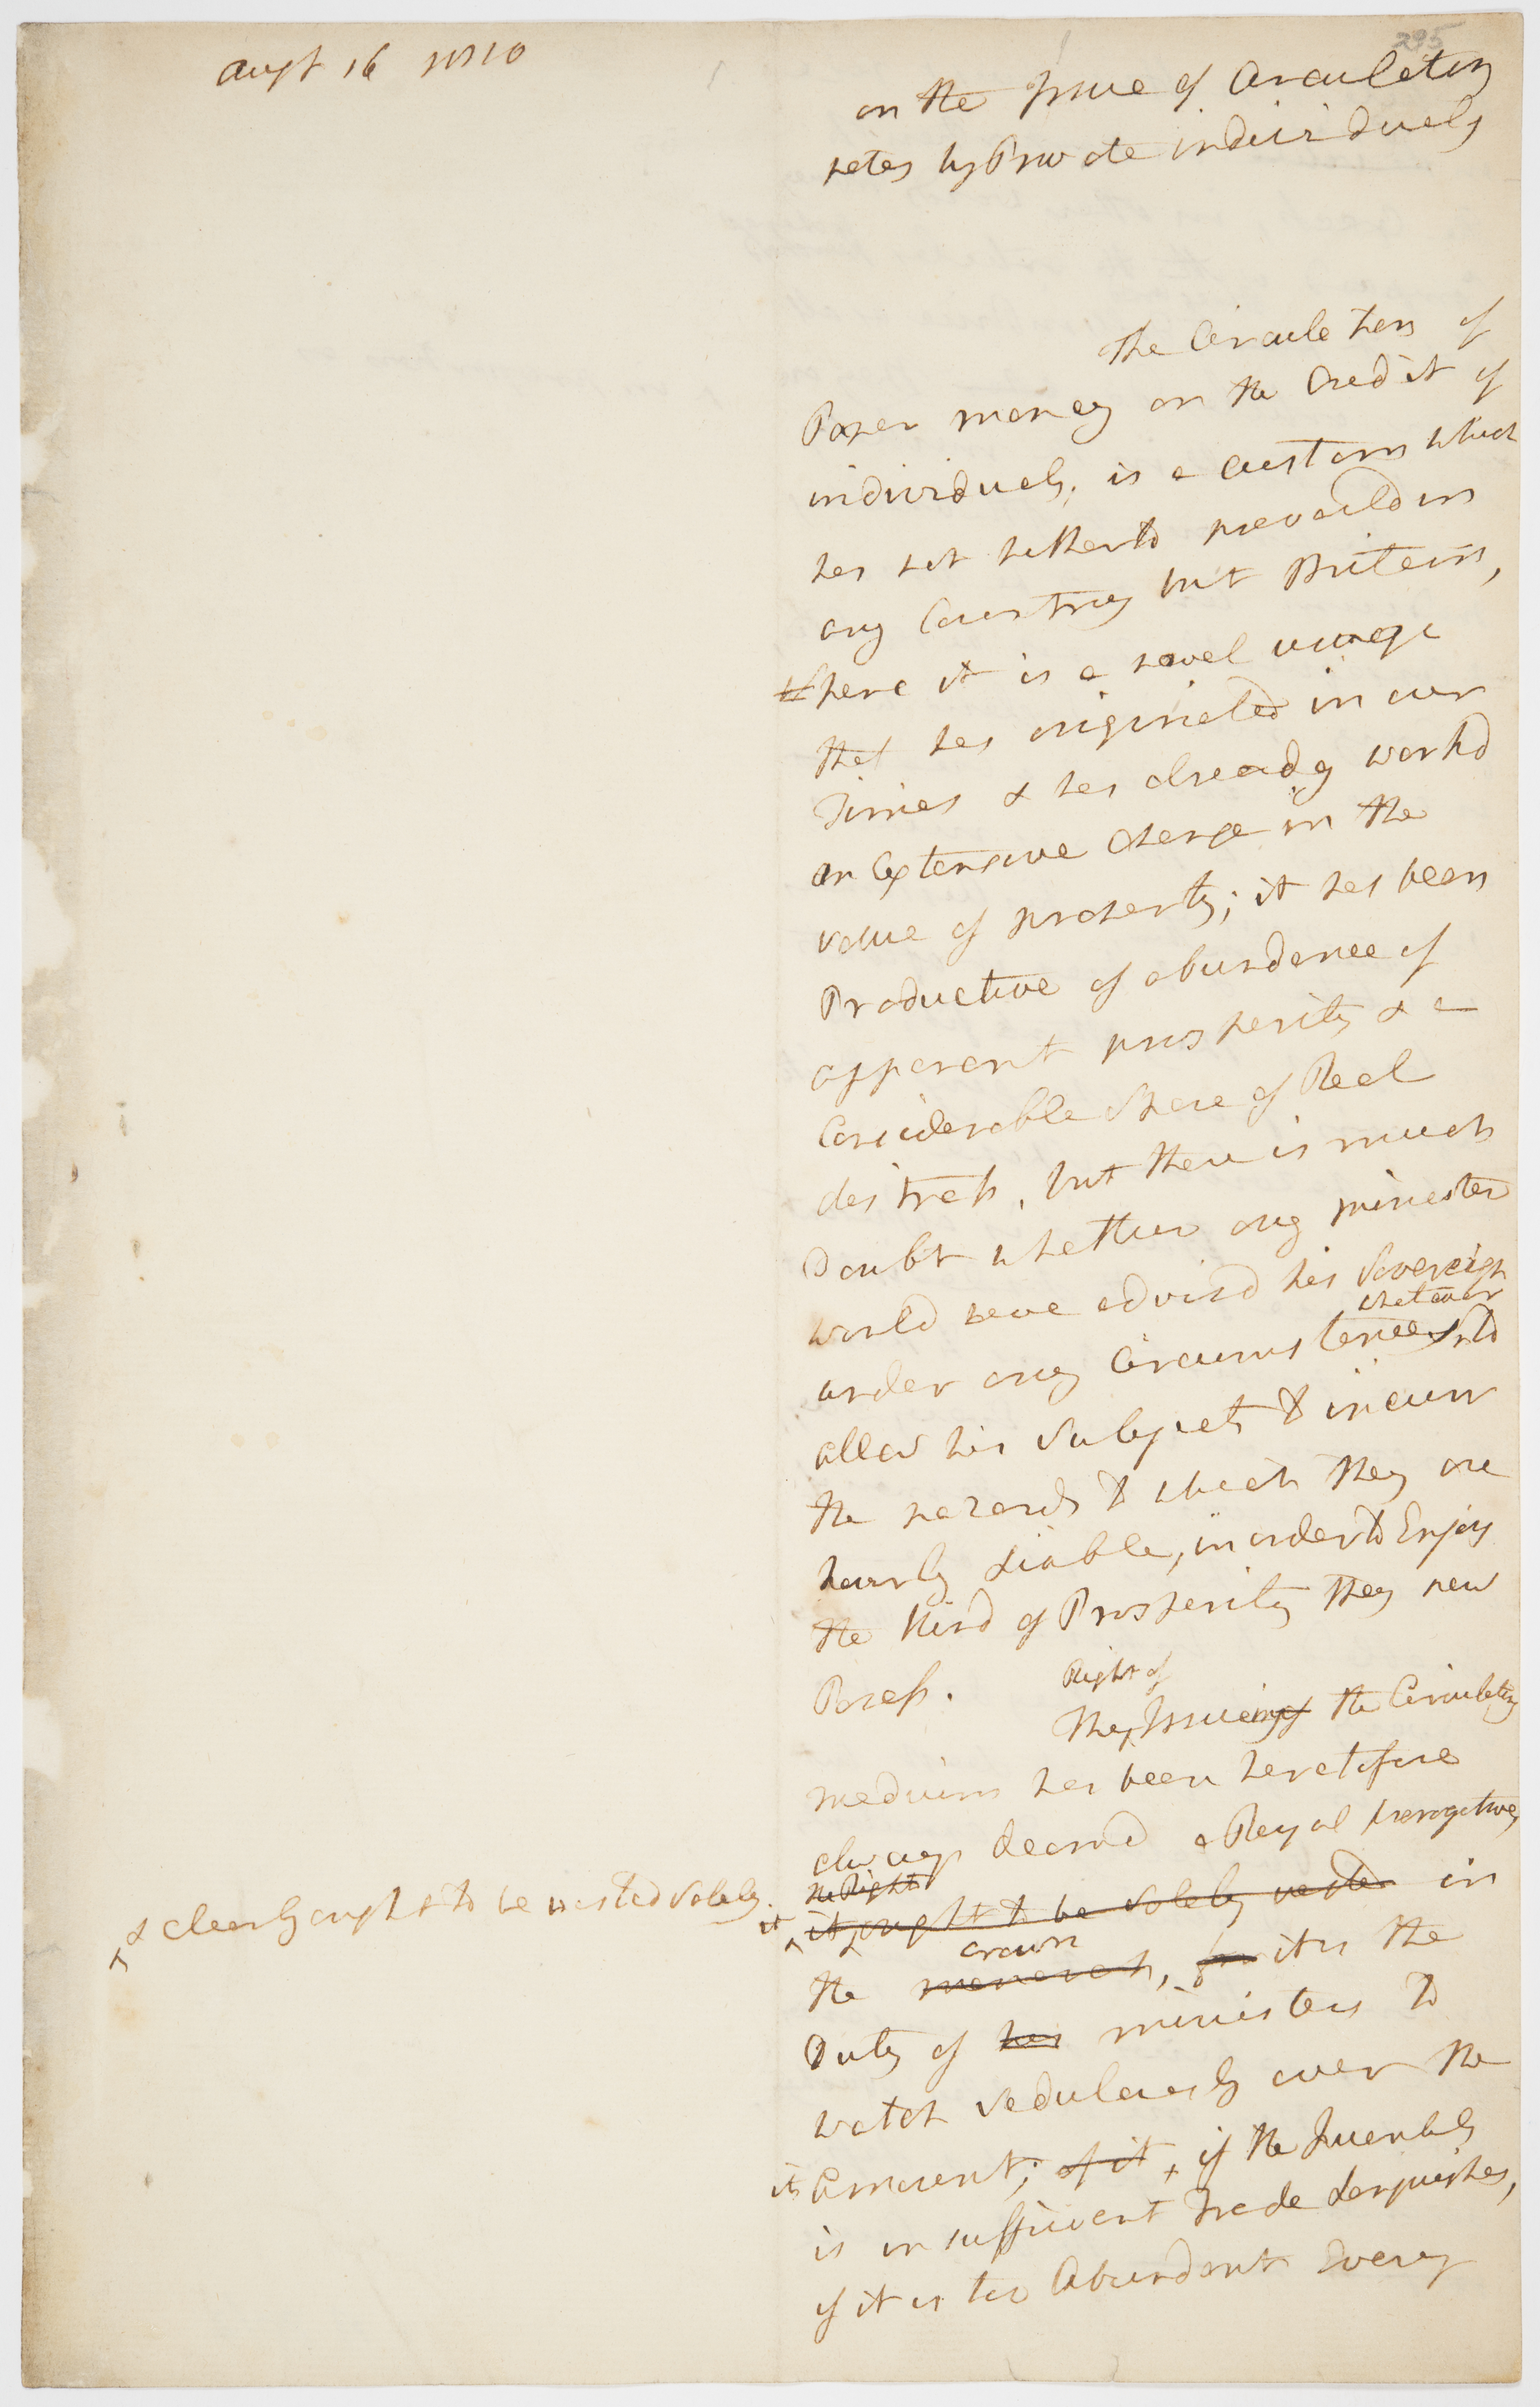 Augt 16 1810
295
on the Issue of Circulating
notes by Private individuals
The Circulation of
Paper money on the Credit of
individuals, is a Custom which
has not hitherto prevaild in
any Country but Britain,
where it is a novel usage
that has originated in our
Times & has already workd
an Extensive Change in the
value of property; it has been
Productive of abundance of
apparent prosperity & a
Considerable Share of Real
distress, but there is much
Doubt whether any minister
would have advisd his Sovereign
whatever
under any Circumstances to
allow his Subjects to incurr
the hazards to which they are
hourly Liable, in order to Enjoy
the Kind of Prosperity they now
Possess.
Right of
The Issueing of the Circulating
medium has been heretofore
always deemd a Royal prerogative,
the Right
& clearly ought to be vested Solely.
it it ought to be Solely vested in
crown
the monarch, for it is the
Duty of his ministers to
watch Sedulously over the
its amount, of it, if the Quantity
is insufficient Trade Languishes,
if it is too Abundant Every